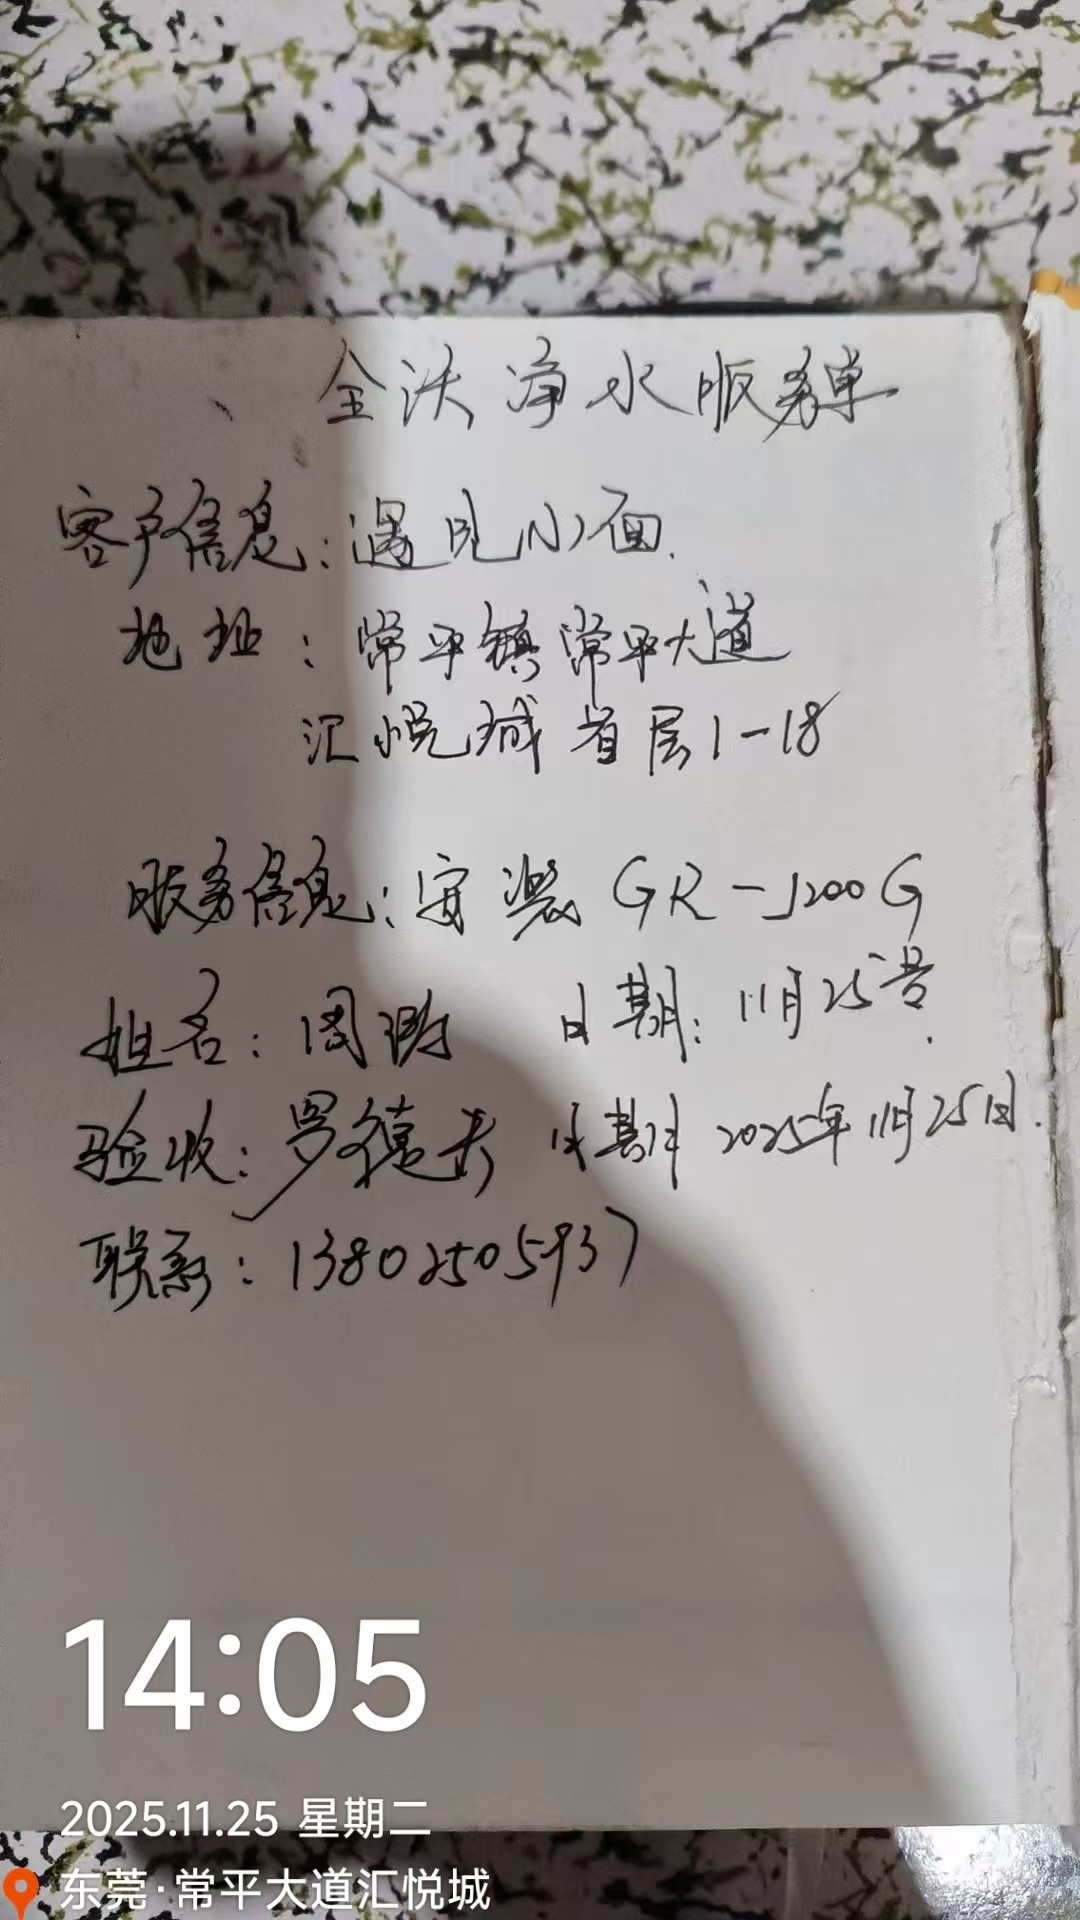 全沃净水服务单
客户信息：遇见小面.
地址：常平镇常平大道
汇悦城首层1-18
服务信息：安装 GR-1200G
姓名：周 日期：11月25号.
验收：罗德 日期 2025年11月25日.
联系：13802505937
14:05
2025.11.25 星期二
东莞·常平大道汇悦城